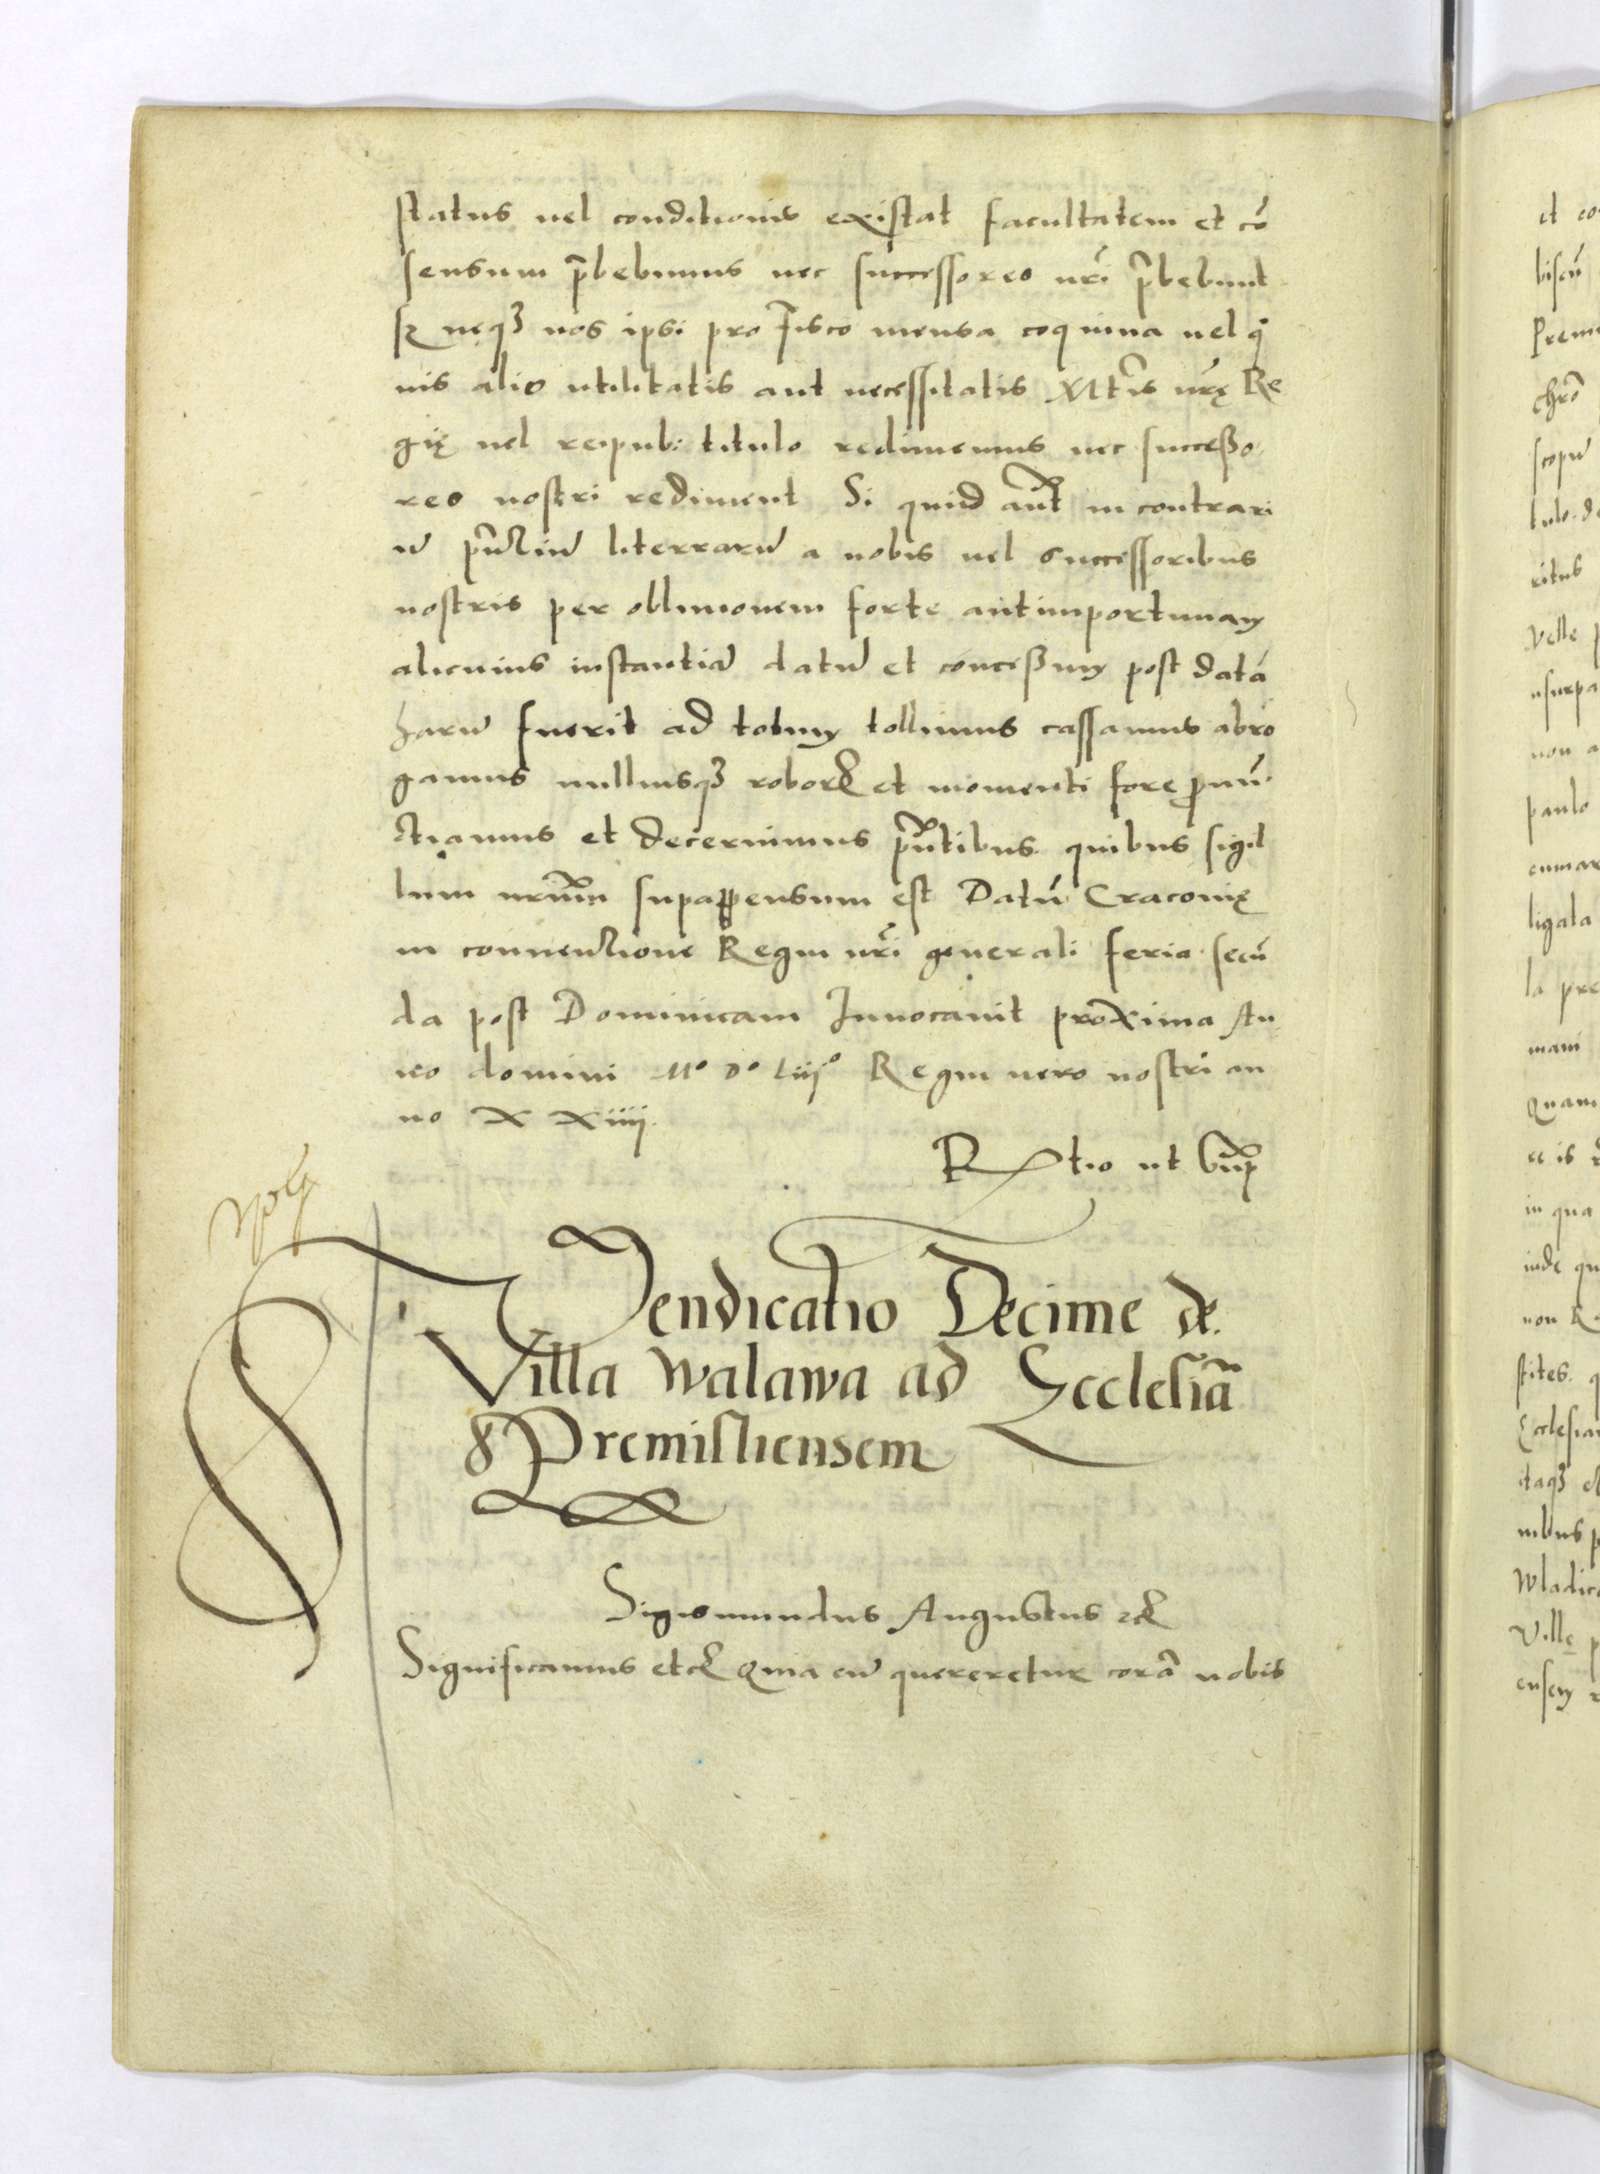 status vel conditionis existat facultatem et cō
sensum p̄bebimus nec successores nr̄i p̄bebunt
sz neqz nos ipsi pro fisco mensa coquina vel q̄
vis alio utilitatis aut necessitatis Mtis nr̄ę Re
gię vel reipub: titulo redimemus nec successo
res nostri rediment Si quid aūt in contrari
ū pn̄tiū literrarū a nobis vel successoribus
nostris per oblivionem forte aut importunam
alicuius instantiā datū et concessum post datā
harū fuerit ad totum tollimus cassamus abro
gamus nulliusqz roboris et momenti fore pronū
ctiamus et decernimus pn̄tibus quibus sigil
lum nr̄um supappensum est Datū Cracovię
in conventione Regni nr̄i generali feria secū
da post Dominicam Invocavit proxima An
no domini Mº Dº Liiijº Regni vero nostri an
no XXiiij.
Rtio ut sup̄
Vendicatio Decime de
Villa Walawa ad Ecclesiā
Premisliensem
Sigismundus Augustus etc
Significamus etc Quia cū quereretur corā nobis
et co
biscū
Premi
chrō
scopū
tulo de
ritus
Velle p
usurpa
non a
paulo
cumar
ligata
la pre
mani
Quam
ec is
in qua
inde qu
non R
stites q
Ecclesia
itaqz
nibus p
Wladic
Villę p
ensem